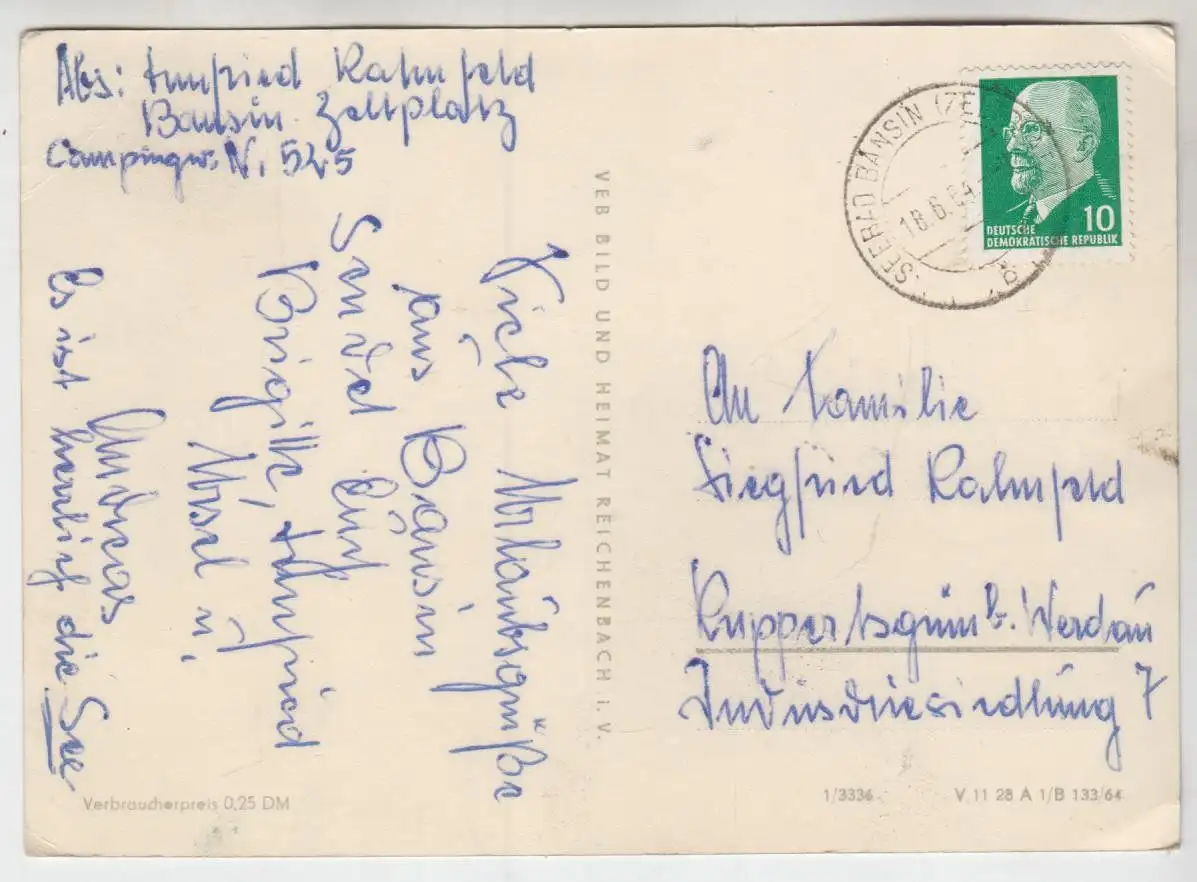 Abs: Annfried Rahnfeld
Bansin Zeltplatz
Campingw. N. 525
Viele Urlaubsgrüße
aus Bansin
sendet Euch
Brigitte, Annfried
Ursel u.
Andreas
Es ist herrlich die See
VEB BILD UND HEIMAT REICHENBACH i. V.
SEEBAD BANSIN
18.6.64
DEUTSCHE
DEMOKRATISCHE REPUBLIK
10
An Familie
Siegfried Rahnfeld
Ruppertsgrün b. Werdau
Industriesiedlung 7
Verbraucherpreis 0,25 DM
1/3336
V 11 28 A 1/B 133/64